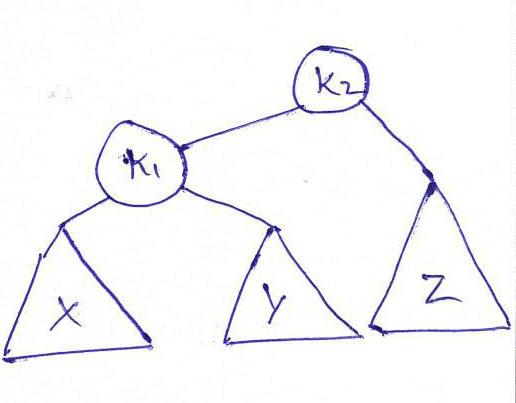 K2
K1
X
Y
Z